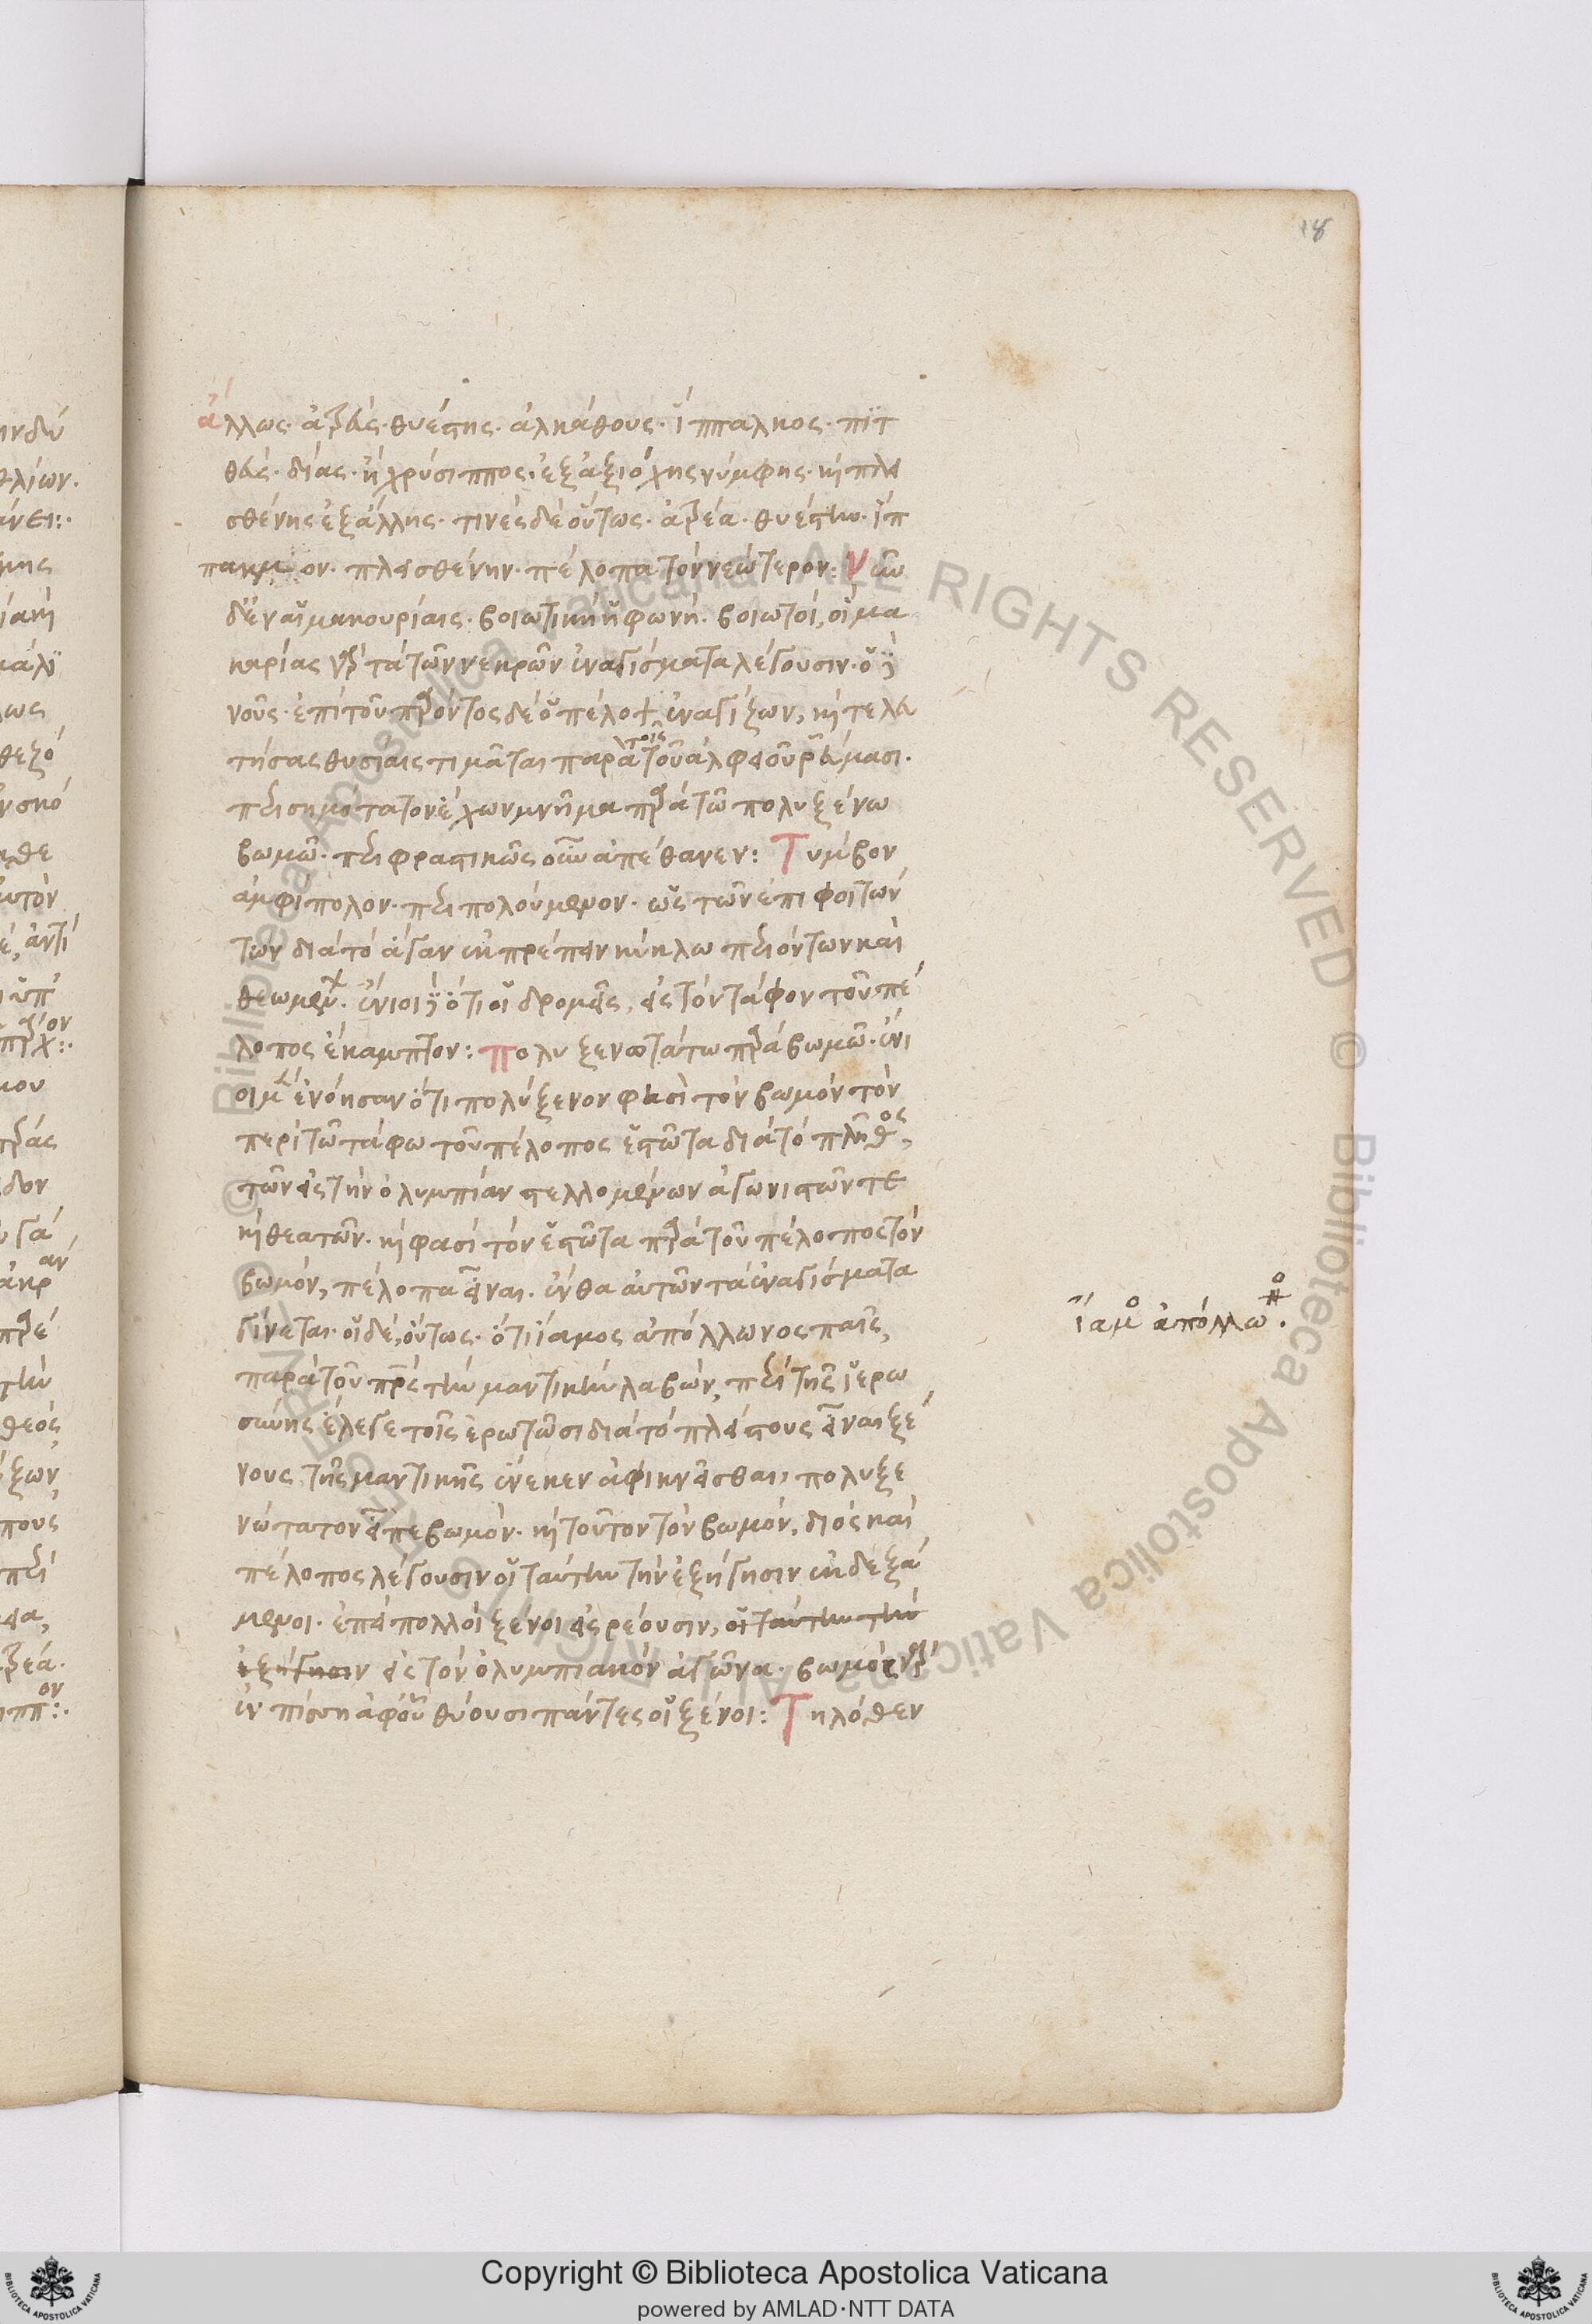 18
ἄλλως. ἀτρεύς. θυέστης. ἀλκάθους. ἵππαλκος. πιτ
θεύς. δίας. ἢ χρύσιππος. ἐξ ἀξιόχης νύμφης. καὶ πλει
σθένης ἐξ ἄλλης. τινὲς δὲ οὕτως. ἀτρέα. θυέστην. ἵπ
παλκμον. πλεισθένην. πέλοπα τὸν νεώτερον: Νῦν
δ' ἐν αἱμακουρίαις. βοιωτικὴ ἡ φωνή. βοιωτοὶ, αἱμα
κουρίας γὰρ τὰ τῶν νεκρῶν ἐναγίσματα λέγουσιν. ὁ δὲ
νοῦς. ἐπὶ τοῦ παρόντος δὲ ὁ πέλοψ ἐναγίζων, καὶ τελευ
τήσας θυσίαις τιμᾶται παρὰ τοῖς τοῦ ἀλφειοῦ ῥεύμασι.
περισημότατον ἔχων μνῆμα παρὰ τῷ πολυξένω
βωμῶ. περιφραστικῶς οὖν ἀπέθανεν: Τύμβον
ἀμφίπολον. περιπολούμενον. ὡς τῶν ἐπιφοιτών
των διὰ τὸ ἄγαν εὐπρέπειν κύκλω περιιόντων καὶ
θεωμένων. ἔνιοι δὲ ὅτι οἱ δρομεῖς, εἰς τὸν τάφον τοῦ πέ
λοπος ἔκαμπτον: πολυξενωτάτω παρὰ βωμῶ. ἔνι
οι μὲν ἐνόησαν ὅτι πολύξενον φησὶ τὸν βωμὸν τὸν
περὶ τῶ τάφω τοῦ πέλοπος ἑστῶτα διὰ τὸ πλῆθος,
τῶν εἰς τὴν ὀλυμπίαν στελλομένων ἀγωνιστῶν τε
καὶ θεατῶν. καὶ φασὶ τὸν ἑστῶτα παρὰ τοῦ πέλοπος τὸν
βωμόν, πέλοπα εἶναι. ἔνθα αὐτῶν τὰ ἐναγίσματα
γίνεται. οἱ δὲ, οὕτως. ὅτι ἴαμος ἀπόλλωνος παῖς,
παρὰ τοῦ πατρὸς τὴν μαντικὴν λαβὼν, περὶ τῆς ἱερω
σύνης ἔλεγε τοῖς ἐρωτῶσι διὰ τὸ πλείστους εἶναι ξέ
νους τῆς μαντικῆς ἕνεκεν ἀφικνεῖσθαι, πολυξε
νώτατον εἶπε βωμόν. καὶ τοῦτον τὸν βωμόν, διὸς καὶ
πέλοπος λέγουσιν οἱ ταύτην τὴν ἐξήγησιν ἐκδεξά
μενοι. ἐπεὶ πολλοὶ ξένοι εἰσρέουσιν, οἱ ταύτην τὴν
ἐξήγησιν εἰς τὸν ὀλυμπιακὸν ἀγῶνα. βωμὸς γὰρ
ἐν πίση ἀφ' οὗ θύουσι πάντες οἱ ξένοι: Τηλόθεν
ἴαμος ἀπόλλωνος
Copyright © Biblioteca Apostolica Vaticana
powered by AMLAD·NTT DATA
© Biblioteca Apostolica Vaticana ALL RIGHTS RESERVED